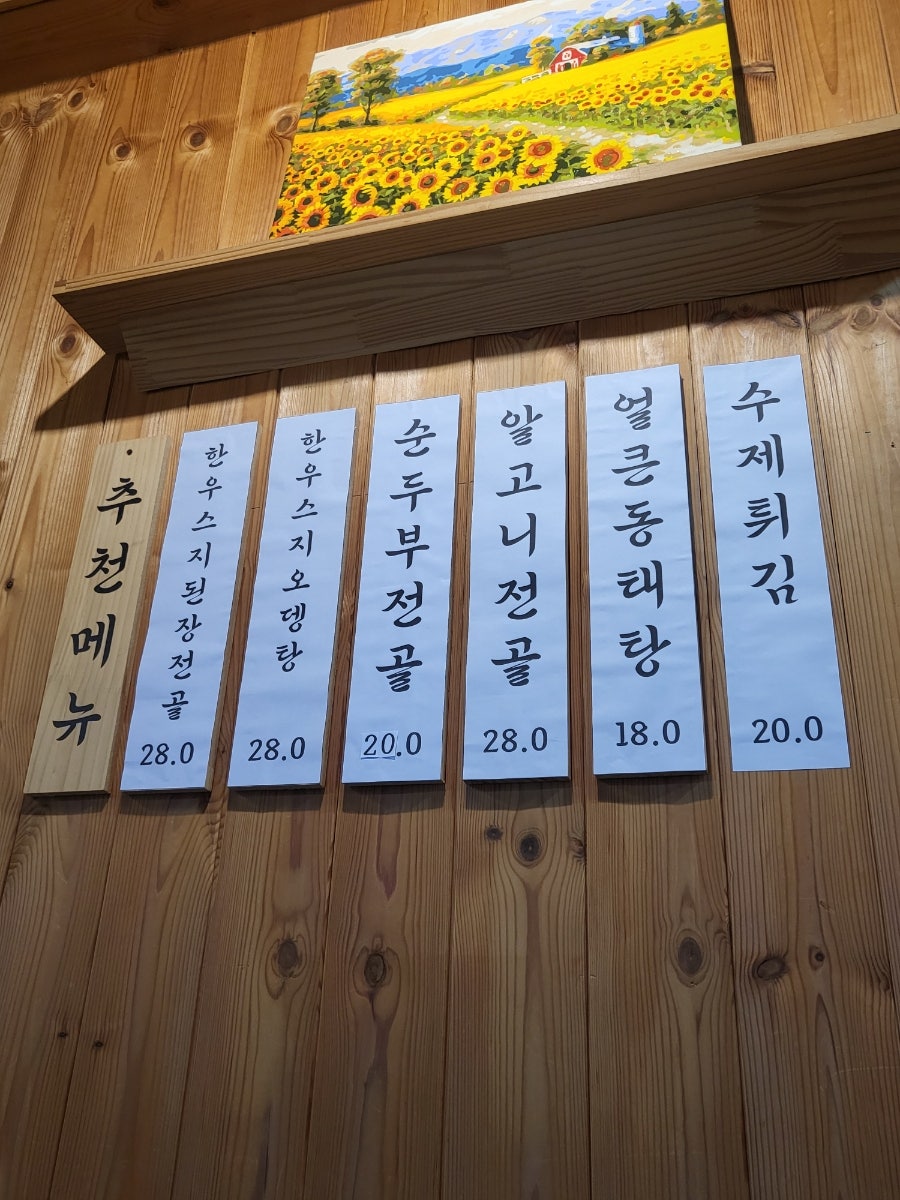 추천메뉴
한우스지된장전골
28.0
한우스지오뎅탕
28.0
순두부전골
20.0
알고니전골
28.0
얼큰동태탕
18.0
수제튀김
20.0